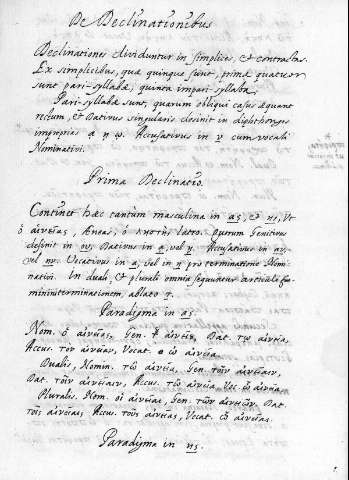 De Declinationibus
Declinationes dividuntur in simplices, et contractas.
Ex simplicibus, quæ quinque sunt, primæ quatuor
sunt pari-syllabæ, quinta impari syllaba.
Pari-syllabæ sunt, quarum obliqui casus æquant
rectum, et Dativus singularis desinit in diphthonges
improprias ᾳ ῃ ῳ. Accusativus in ν cum vocali
Nominativi.
Prima Declinatio.
Continet hæc tantum masculina in ας, et ης, ut
ὁ αἰνείας, Æneas, ὁ latro. quorum Genitivus
desinit in ου, Dativus in ᾳ, vel ῃ. Accusativus in αν,
vel ην. Vocativus in α, vel in η pro terminatione Nomi-
nativi. In duali, et plurali omnia sequuntur articuli fæ-
mininiterminationem, ablato τ.
Paradigma in ας.
Nom. ὁ αἰνείας, Gen. αἰνείου, Dat. τῳ αἰνείᾳ,
Accus. τὸν αἰνείαν, Vocat. ὦ αἰνεία.
Dualis, Nomin. τὼ αἰνεία, Gen. τοῖν αἰνείαιν,
Dat. τοῖν αἰνείαιν, Accus. τὼ αἰνεία, Voc. ὦ αἰνεία.
Pluralis. Nom. οἱ αἰνείαι, Gen. τῶν αἰνειῶν, Dat.
τοῖς αἰνείαις, Accus. τοὺς αἰνείας, Vocat. ὦ αἰνείαι.
Paradigma in ης.